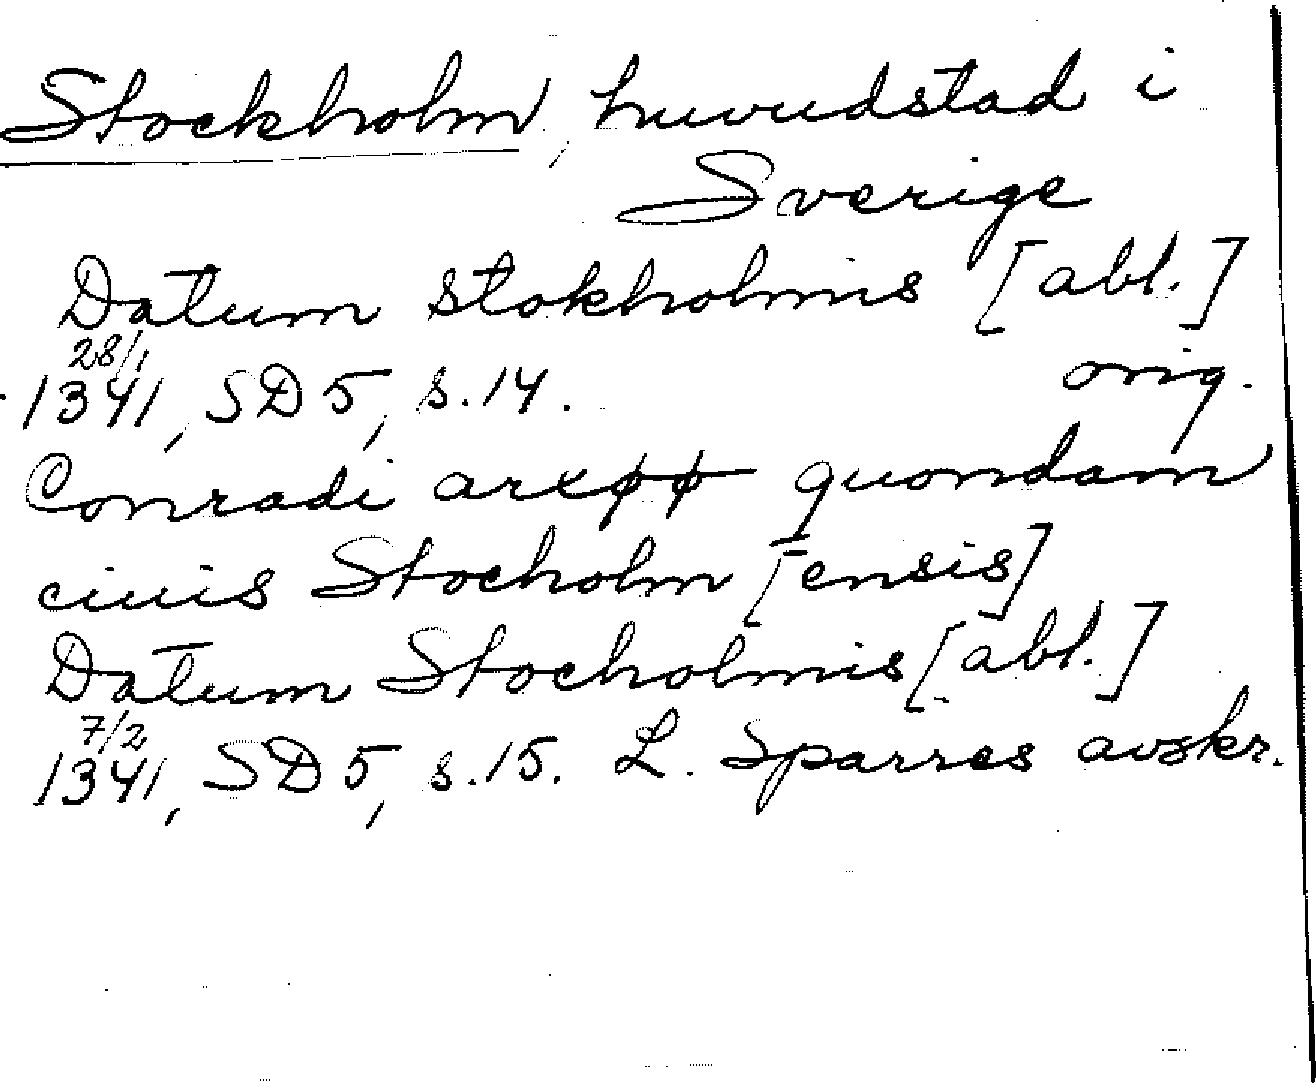 Stockholm, huvudstad i
Sverige
Datum stokholmis [abl.]
28/1
1341, SD 5, s. 14. orig.
Conradi quondam
ciuis Stocholm [ensis]
Datum Stocholmis [abl.]
7/2
1341, SD 5, s. 15. L. Sparres avskr.